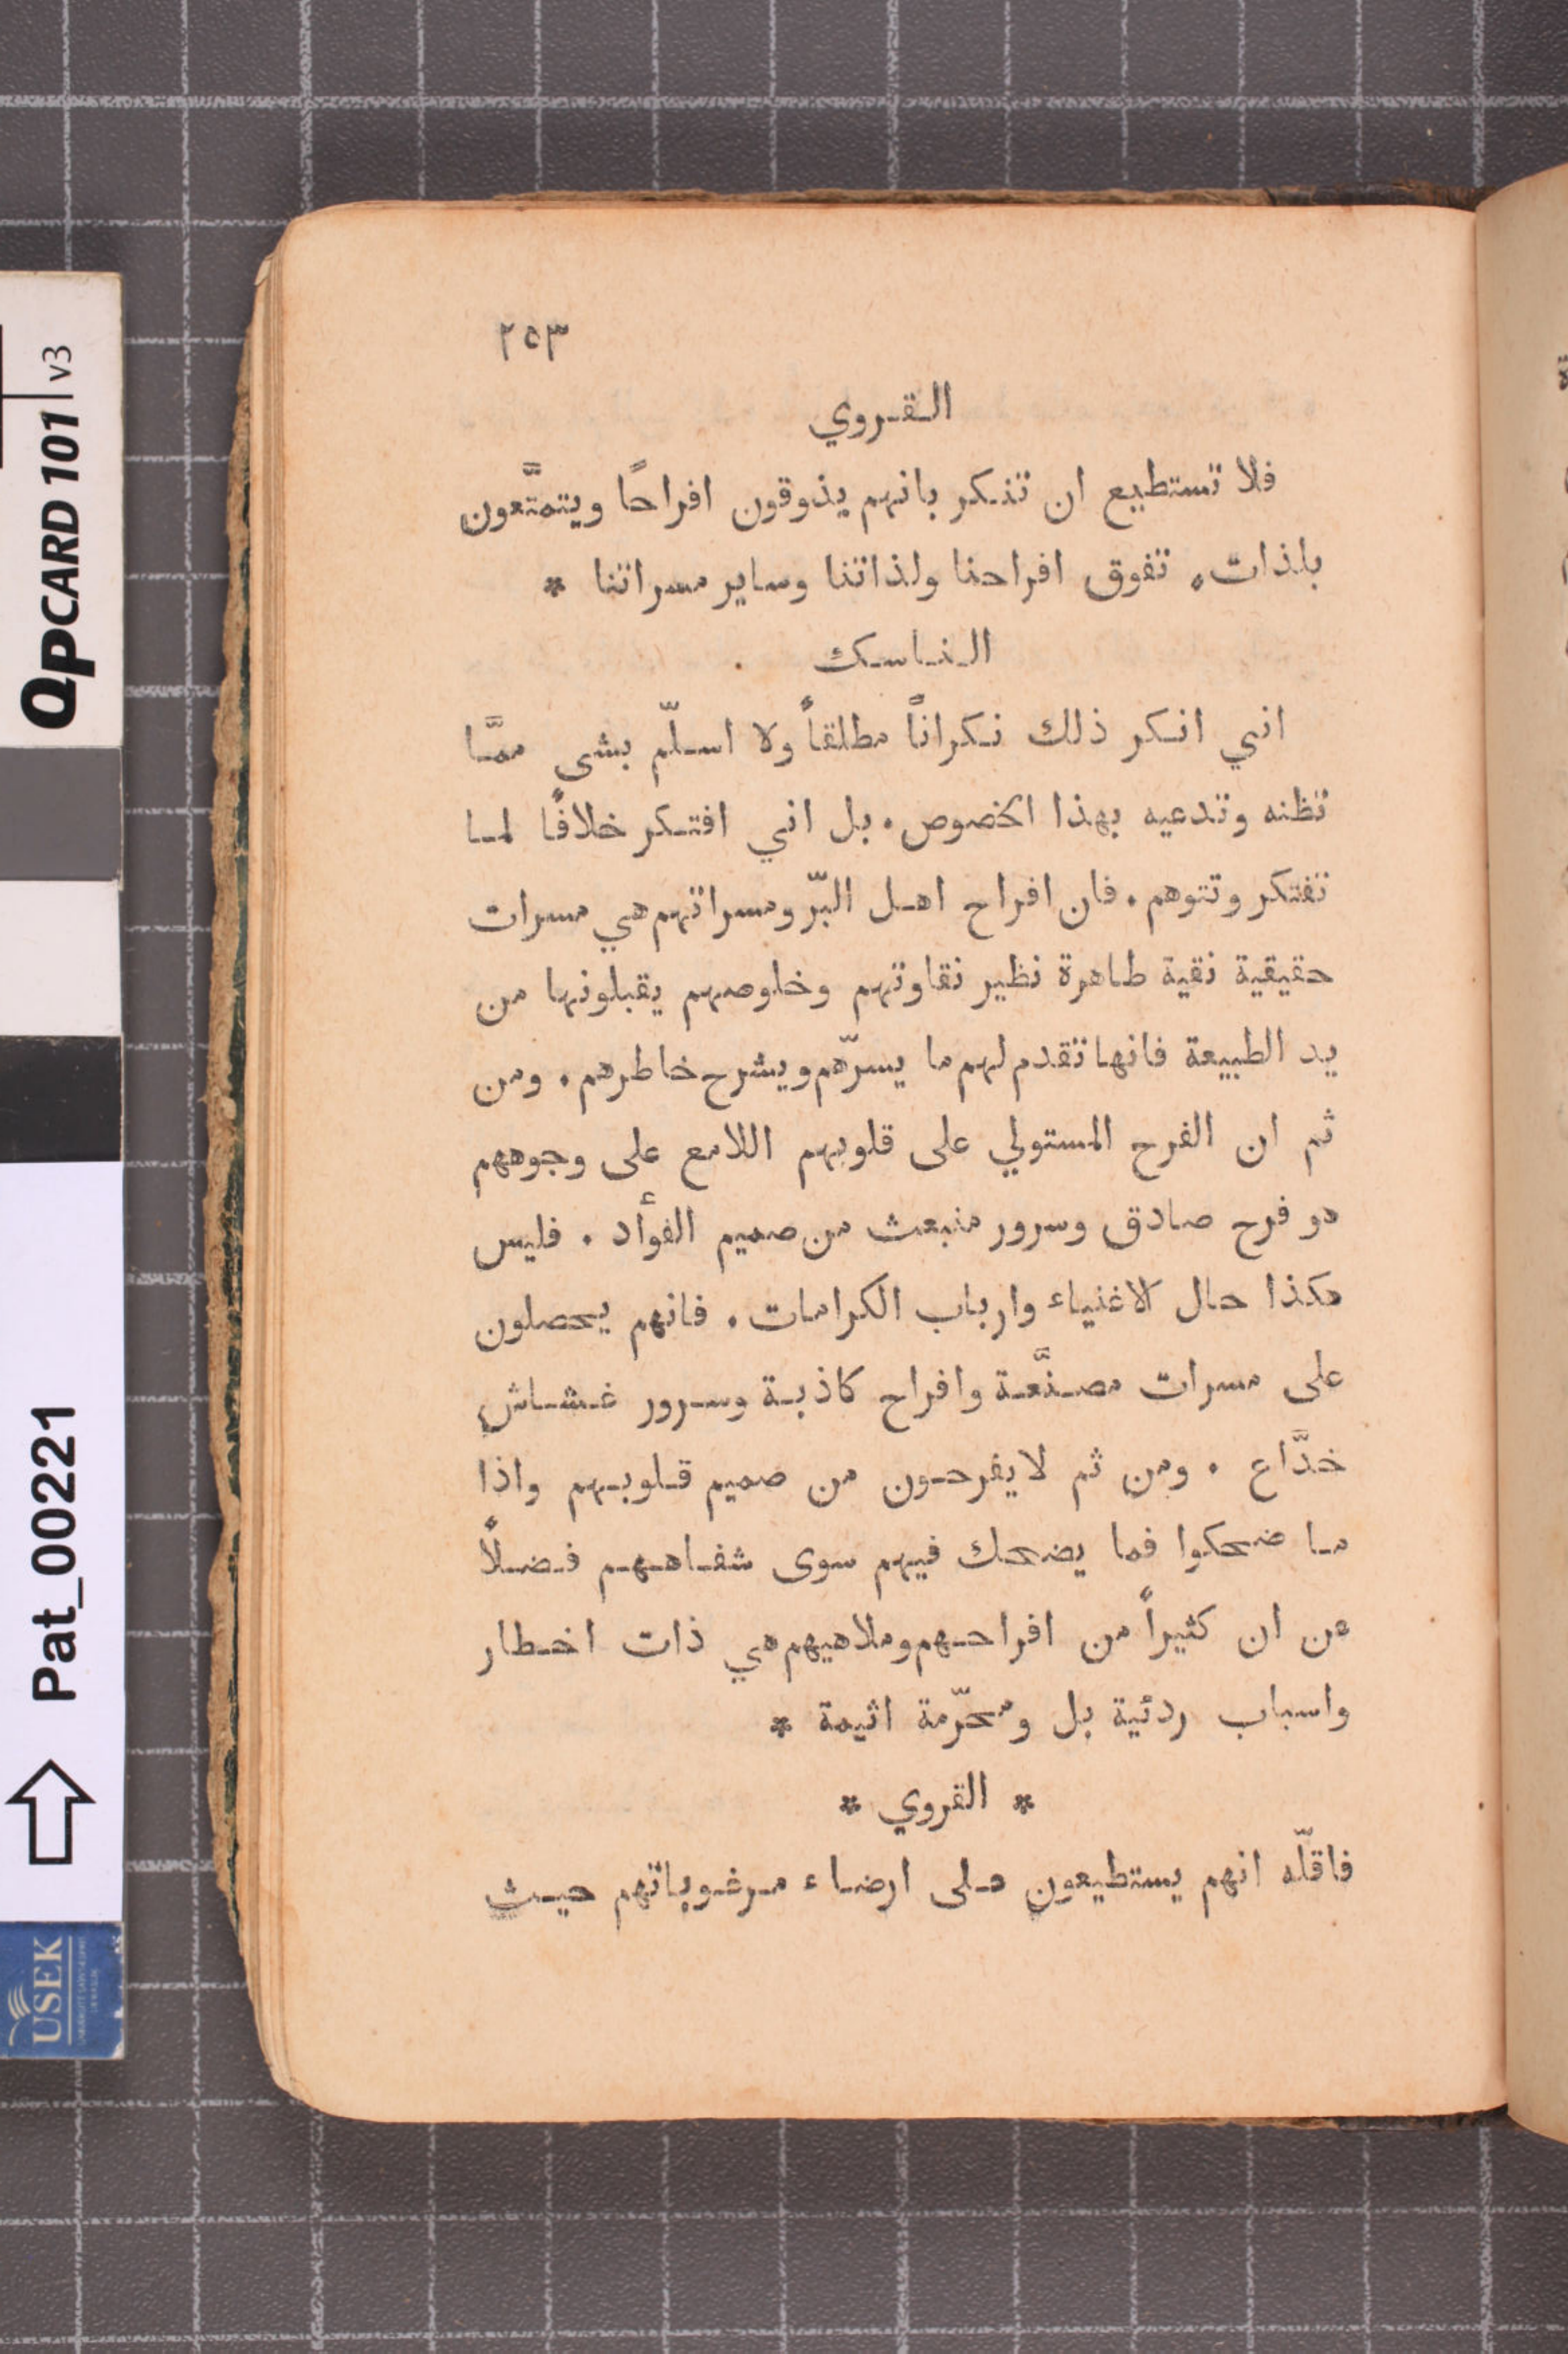 ٢٥٣
القروي
فلا تستطيع ان تنكر بانهم يذوقون افراحًا ويتمتَّعون
بلذات. تفوق افراحنا ولذاتنا وساير مسراتنا *
الناسك
اني انكر ذلك نكرانًا مطلقاً ولا اسلّم بشي ممَّا
تظنه وتدعيه بهذا الخصوص. بل اني افتكر خلافًا لما
تفتكر وتتوهم. فان افراح اهل البّر ومسراتهم هي مسرات
حقيقية نقية طاهرة نظير نقاوتهم وخلوصهم يقبلونها من
يد الطبيعة فانها تقدم لهم ما يسرّهم ويشرح خاطرهم. ومن
ثم ان الفرح المستولي على قلوبهم اللامع على وجوههم
هو فرح صادق وسرور منبعث من صميم الفوأد. فليس
هكذا حال الاغنياء وارباب الكرامات. فانهم يحصلون
على مسرات مصنَّعة وافراح كاذبة وسرور غشاش
خدَّاع. ومن ثم لا يفرحون من صميم قلوبهم واذا
ما ضحكوا فما يضحك فيهم سوى شفاههم فضلاً
عن ان كثيراً من افراحهم وملاهيهم هي ذات اخطار
واسباب ردئية بل ومحرّمة اثيمة *
* القروي *
فاقلّه انهم يستطيعون على ارضاء مرغوباتهم حيث
QPCARD 101 v3
Pat_00221
USEK